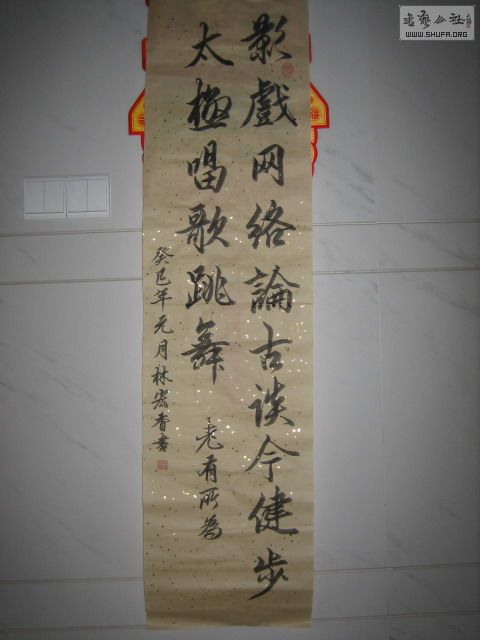 影戲网络論古谈今健步
太極唱歌跳舞
老有所為
癸巳年元月林宏香書
書藝公社
WWW.SHUFA.ORG